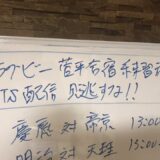 ラグビー 菅平合宿 練習試
TS配信 見逃すな!!
慶應 対 帝京 13:00
明治 対 天理 13:00